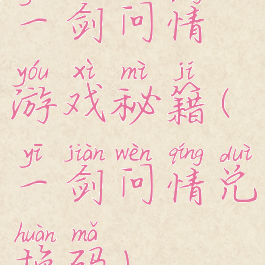 一剑问情
yóu xì mì jí
游戏秘籍(
yī jiàn wèn qíng duì
一剑问情兑
huàn mǎ
换码)